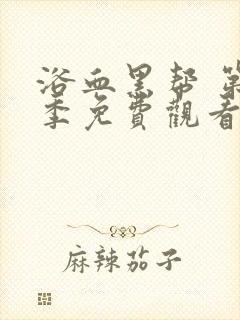 浴血黑帮 第
季免費觀看
麻辣茄子